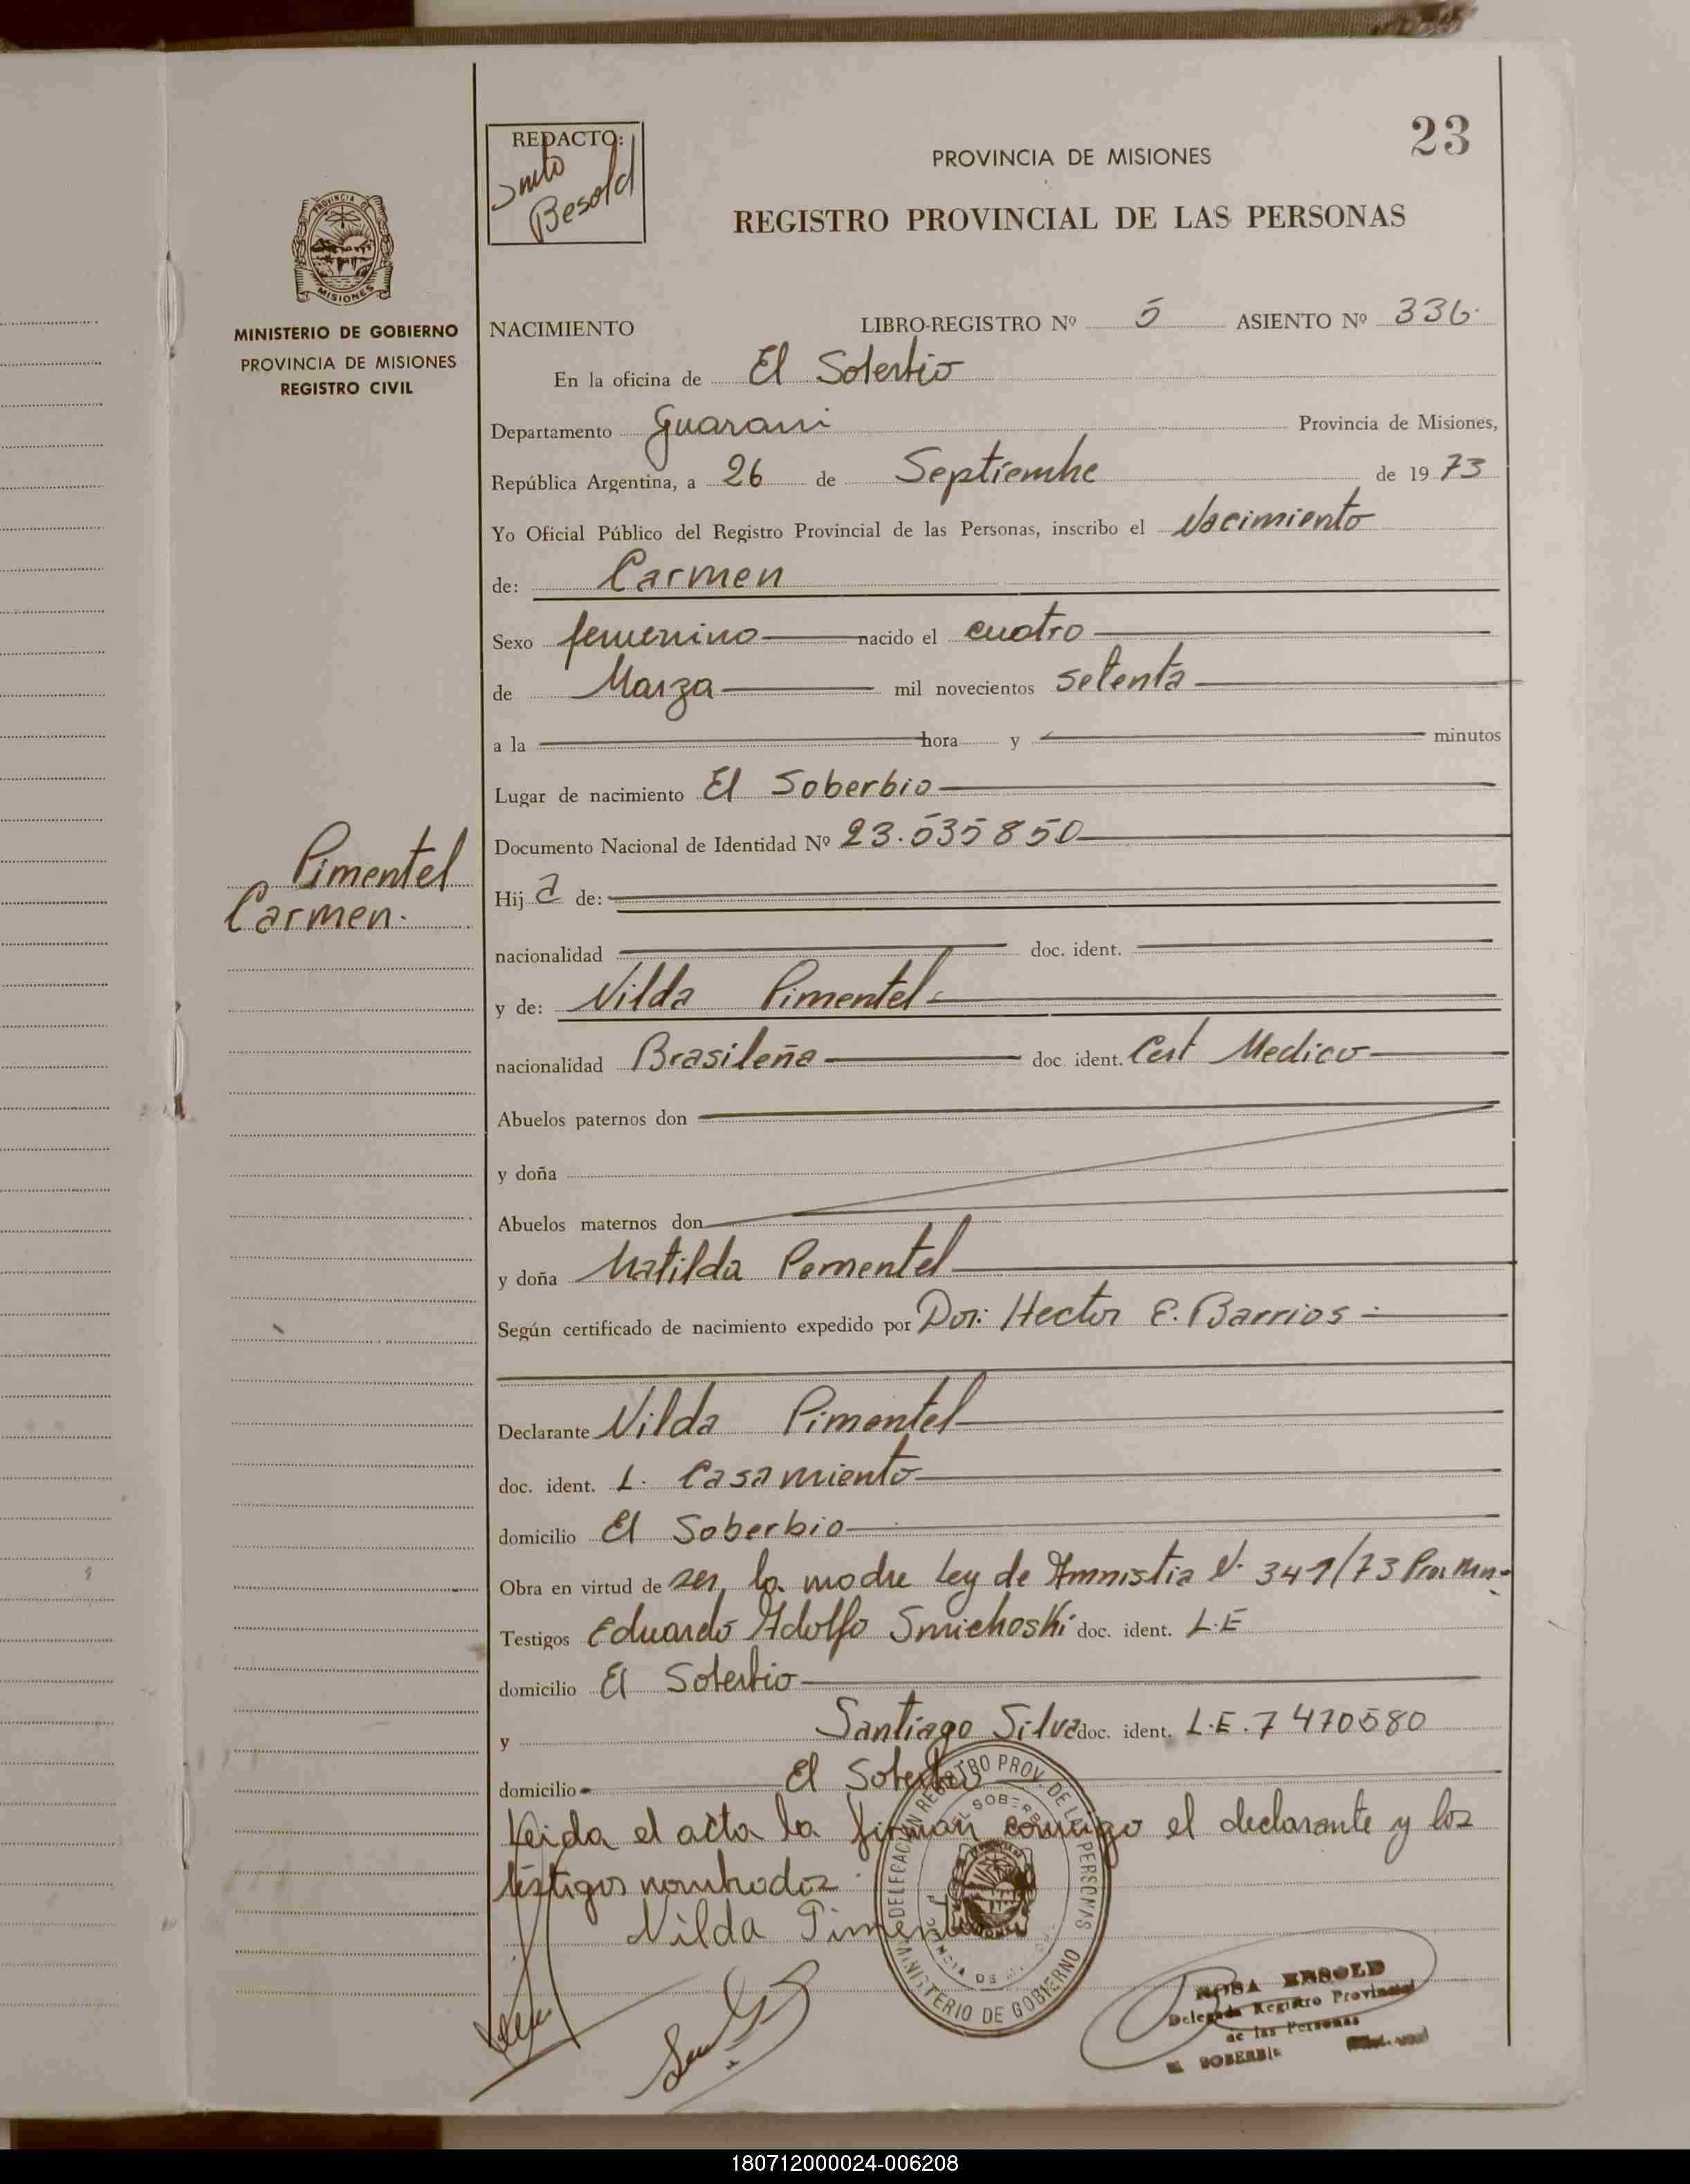 23
REDACTO:
Besold
PROVINCIA DE MISIONES
REGISTRO PROVINCIAL DE LAS PERSONAS
PROVINCIA DE
MISIONES
MINISTERIO DE GOBIERNO
PROVINCIA DE MISIONES
REGISTRO CIVIL
NACIMIENTO LIBRO-REGISTRO Nº 5 ASIENTO Nº 336.
En la oficina de El Soberbio
Departamento Guarani Provincia de Misiones,
República Argentina, a 26 de Septiembre de 1973
Yo Oficial Público del Registro Provincial de las Personas, inscribo el Nacimiento
de: Carmen
Sexo femenino nacido el cuatro
de Marzo mil novecientos setenta
a la hora y minutos
Lugar de nacimiento El Soberbio
Documento Nacional de Identidad Nº 23.535850
Pimentel
Carmen.
Hija de:
nacionalidad doc. ident.
y de: Nilda Pimentel
nacionalidad Brasileña doc. ident. Cert Medico
Abuelos paternos don
y doña
Abuelos maternos don
y doña Matilda Pementel
Según certificado de nacimiento expedido por Dor: Hector E. Barrios
Declarante Nilda Pimentel
doc. ident. L. Casamiento
domicilio El Soberbio
Obra en virtud de ser la madre Ley de Amnistia N. 341/73
Testigos Eduardo Adolfo Smichoski doc. ident. L.E
domicilio El Soberbio
y Santiago Silva doc. ident. L.E. 7470580
domicilio El Soberbio
Leida el acta la firman conmigo el declarante y los
testigos nombrados
Nilda Pimentel
DELEGACION REGISTRO PROV. DE LAS PERSONAS
MINISTERIO DE GOBIERNO
ROSA BESOLD
Delegada Registro Provincial
de las Personas
EL SOBERBIO
180712000024-006208